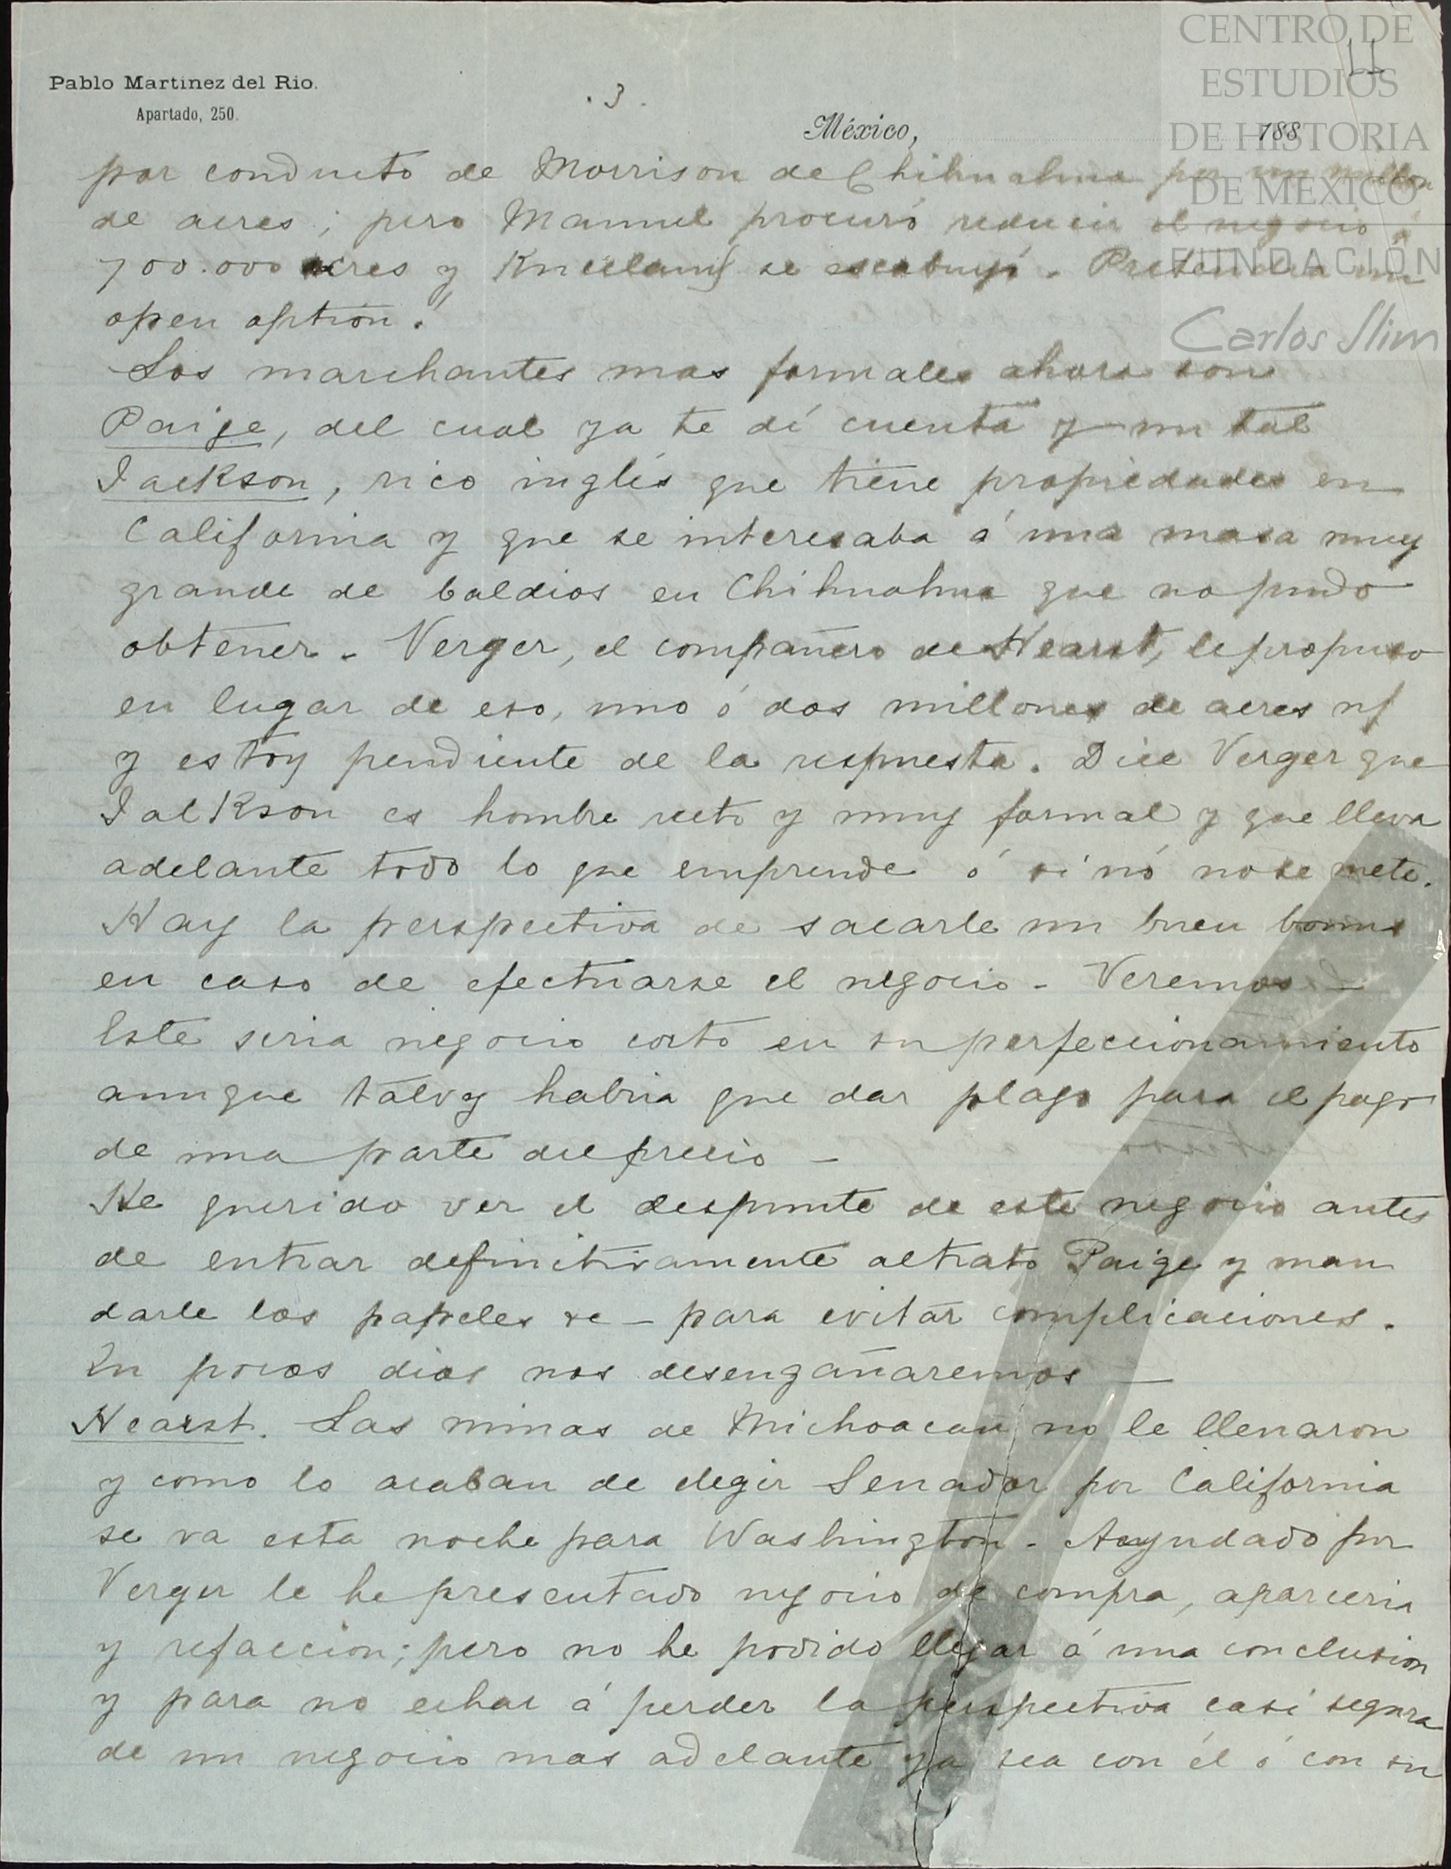 CENTRO DE
ESTUDIOS
DE HISTORIA
DE MÉXICO
FUNDACIÓN
Carlos Slim
11
Pablo Martinez del Rio.
Apartado, 250.
. 3 .
México, 188
por conducto de Morrison de Chihuahua por un millon
de acres; pero Manuel procuró reducir el negocio á
700.000 acres y Kneeland se escabuyó. Pretendia un
open option.
Los marchantes mas formales ahora son
Paige, del cual ya te dí cuenta y un tal
Jackson, rico inglés que tiene propiedades en
California y que se interesaba á una masa muy
grande de baldios en Chihuahua que no pudo
obtener. Verger, el compañero de Hearst, le propuso
en lugar de eso, uno ó dos millones de acres
y estoy pendiente de la respuesta. Dice Verger que
Jackson es hombre recto y muy formal y que lleva
adelante todo lo que emprende ó si nó no se mete.
Hay la perspectiva de sacarle un buen bonus
en caso de efectuarse el negocio - Veremos -
Este seria negocio corto en su perfeccionamiento
aunque talvez habria que dar plazo para el pago
de una parte del precio -
He querido ver el despunte de este negocio antes
de entrar definitivamente al trato Paige y man
darle los papeles &c - para evitar complicaciones.
En pocos dias nos desengañaremos -
Hearst. Las minas de Michoacan no le llenaron
y como lo acaban de elegir Senador por California
se va esta noche para Washington - Ayudado por
Verger le he presentado negocio de compra, aparceria
y refaccion; pero no he podido llegar á una conclusion
y para no echar á perder la perspectiva casi segura
de un negocio mas adelante ya sea con él ó con su